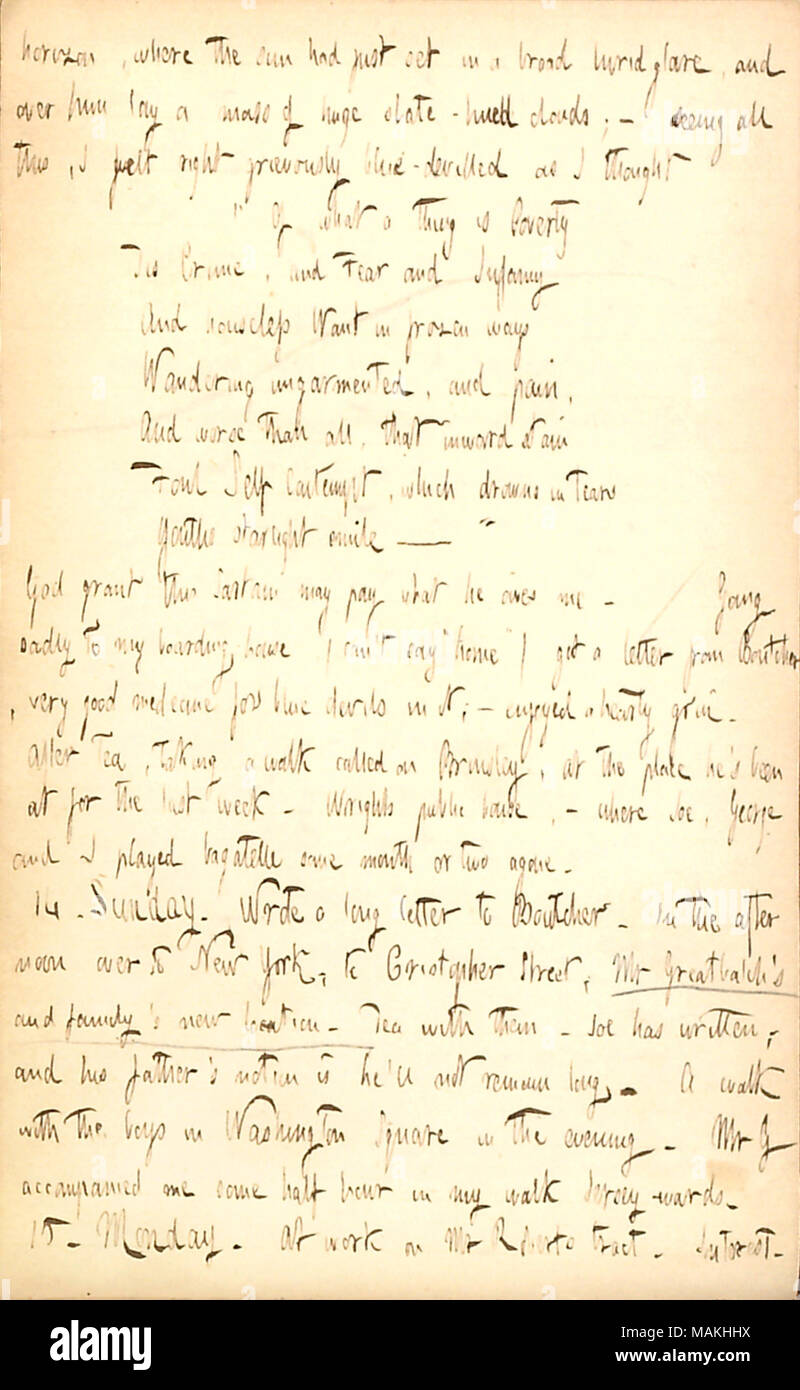 horizon, where the sun had just set in a broad lurid glare, and
over him lay a mass of huge slate-hued clouds; – seeing all
this, I felt right grievously blue-devilled as I thought
"Of what a thing is Poverty
Tis Crime, and Fear and Infamy
And houseless Want in frozen ways
Wandering ungarmented, and pain,
And worse than all, that inward stain
Foul Self Contempt, which drowns in tears
Youths starlight smile — "
God grant this may pay what he owes me – Going
sadly to my boarding house I can't say "home" I got a letter from Boutcher
, very good medecine for blue devils in it; – enjoyed a hearty grin –
After tea, taking a walk called on Brinsley, at the place he's been
at for the last week – Wrights public house, – where Joe, George
and I played bagatelle some month or two agone –
14 – Sunday – Wrote a long letter to Boutcher – In the after
noon over to New York, to Cristopher Street, Mr Greatbatch's
and family's new location – Tea with them – Joe has written,
and his father's notion is he'll not remain long – A walk
with the boys in Washington Square in the evening – Mr G
accompanied me some half hour in my walk Jersey-wards –
15 – Monday – At work on Mr Roberts tract – Interest –
alamy
Image ID: MAKHHX
www.alamy.com